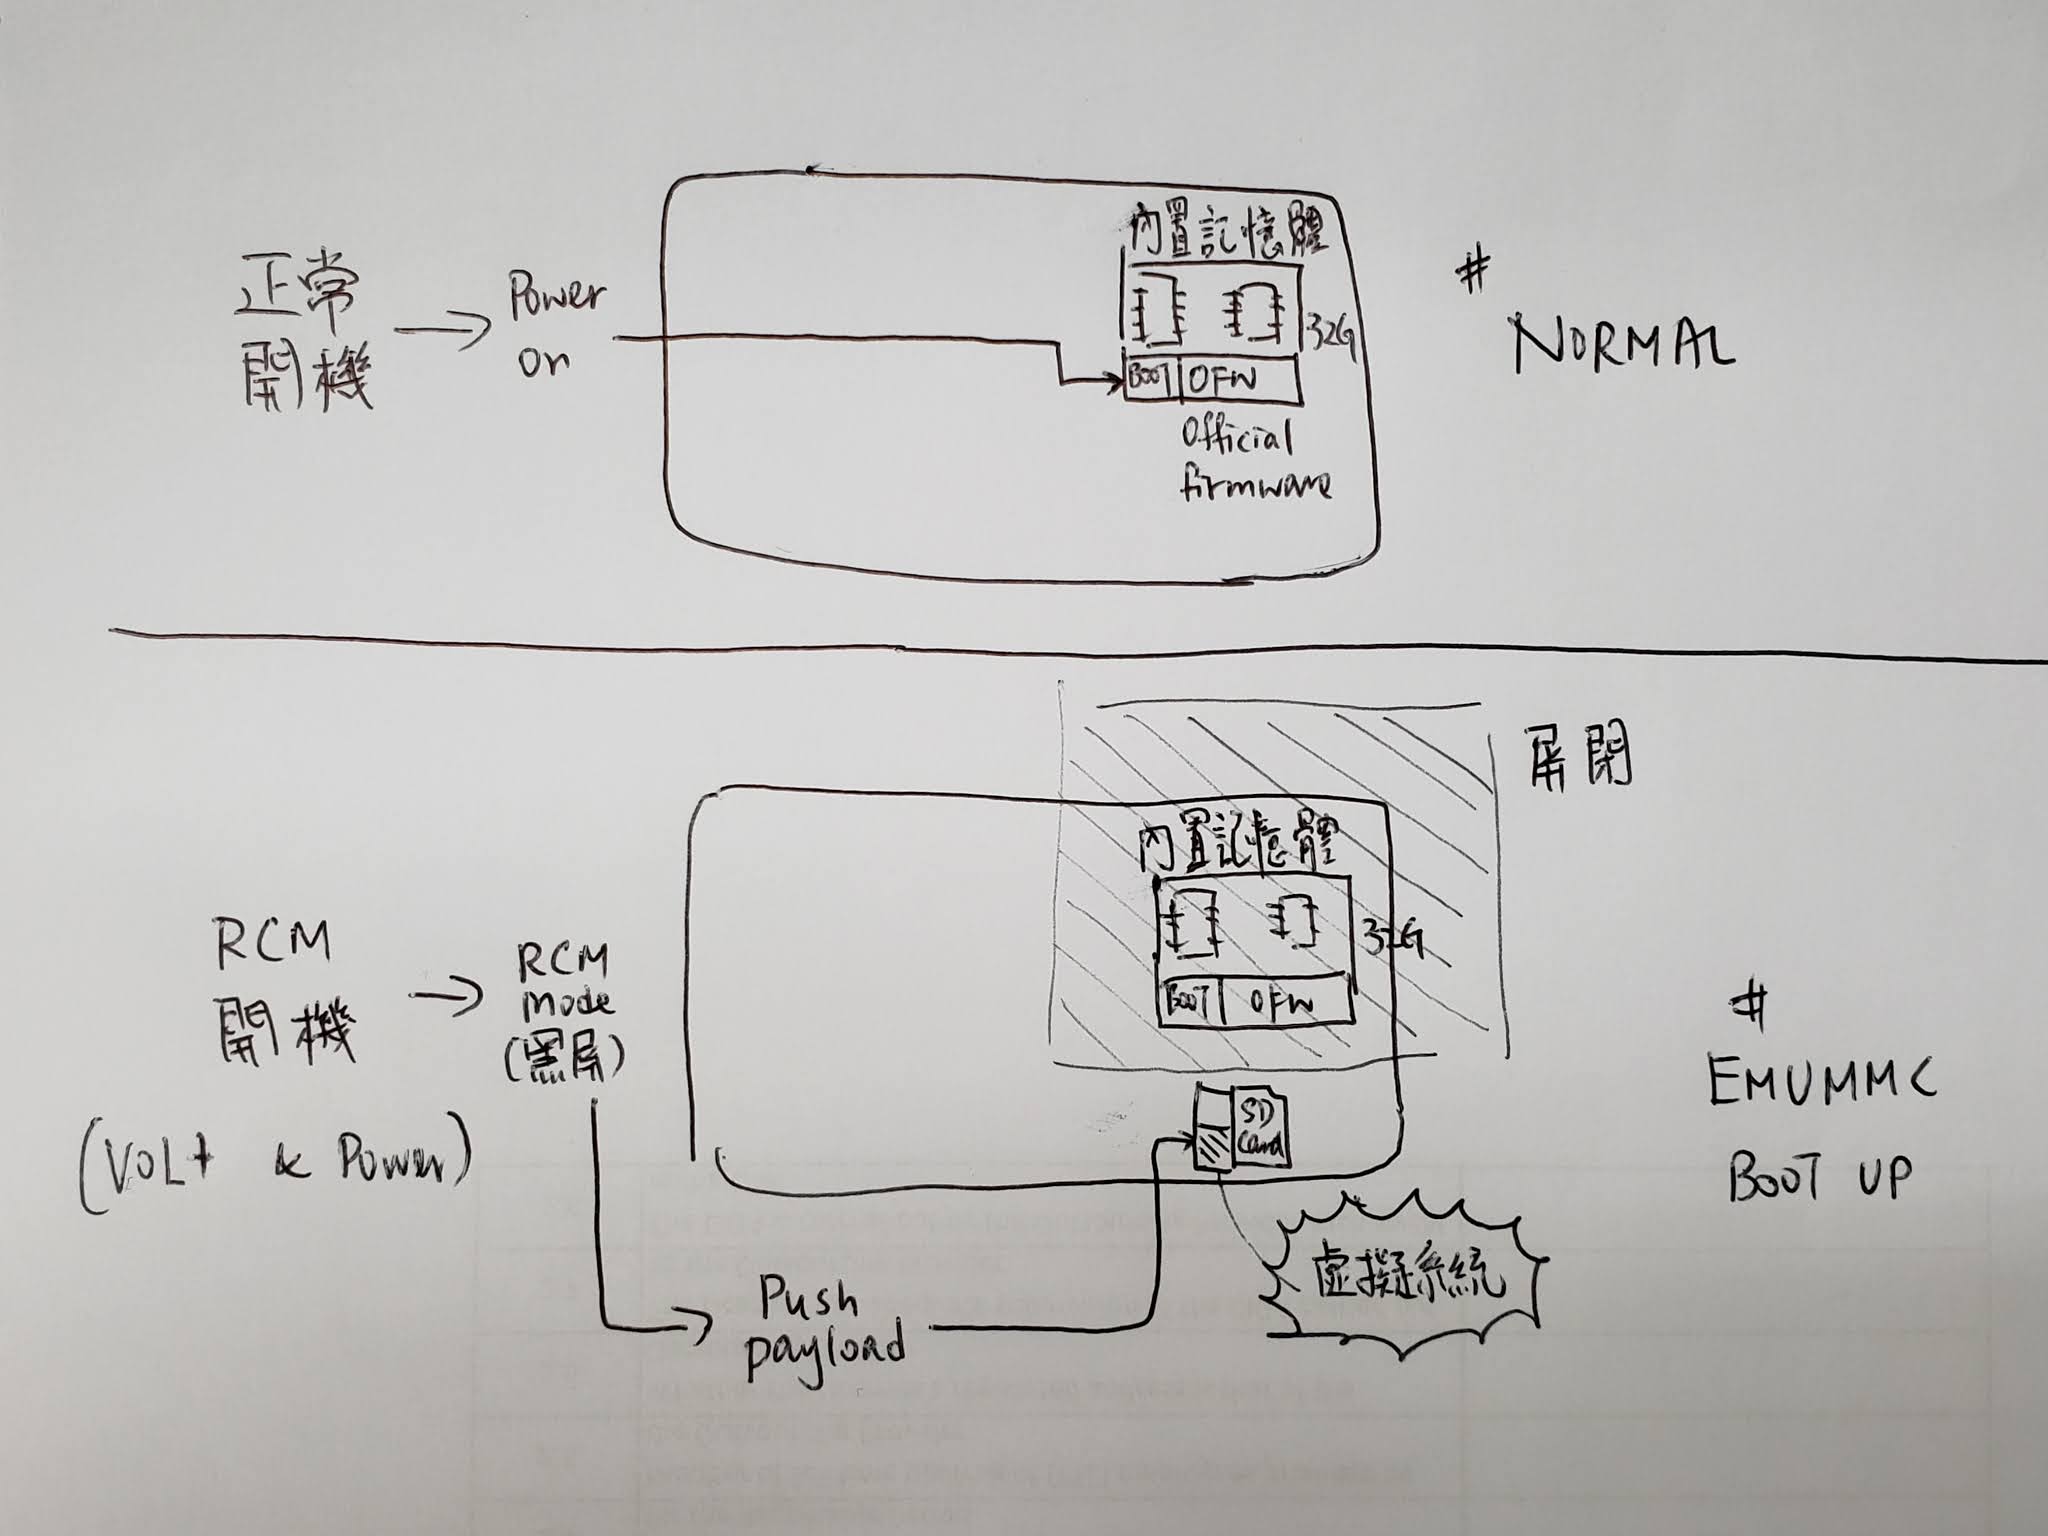 正常
開機
Power
on
內置記憶體
32G
BOOT
OFW
Official
firmware
#
NORMAL
屏閉
內置記憶體
32G
BOOT
OFW
RCM
開機
(VOL+ & Power)
RCM
mode
(黑屏)
Push
payload
SD
Card
虛擬系統
#
EMUMMC
BOOT UP